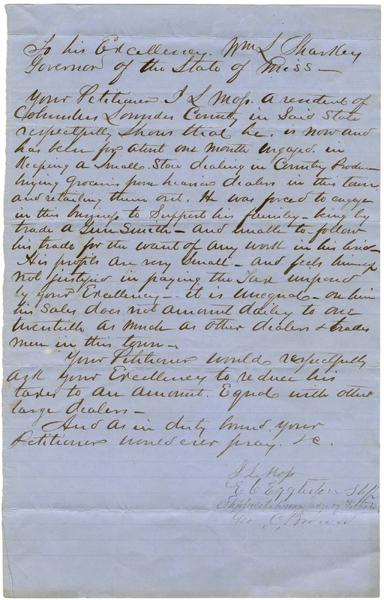 To his Excellency, Wm L Sharkey
Governor of the State of Miss —
Your Petitioner J L Moss a resident of
Columbus Lowndes County in Said State
respectfully Shows that he is now and
has been for about one month engaged in
Keeping a Small Store dealing in Country Produce
buying Groceries from heavier dealers in this town
and retailing them out. He was forced to engage
in this business to Support his family — being by
trade a Gun Smith — and unable to follow
his trade for the want of any work in his line —
His profits are very Small — and feels himself
not justified in paying the Tax imposed
by your Excellency — it is unequal — on him
his Sales does not amount daily to one
twentieth as much as other dealers & trades
men in this town —
Your Petitioner would respectfully
ask your Excellency to reduce his
taxes to an amount Equal with other
large dealers —
And as in duty bound your
Petitioner would ever pray. &c.
J L Moss
E. C. Eggleston
Geo. C. Brown